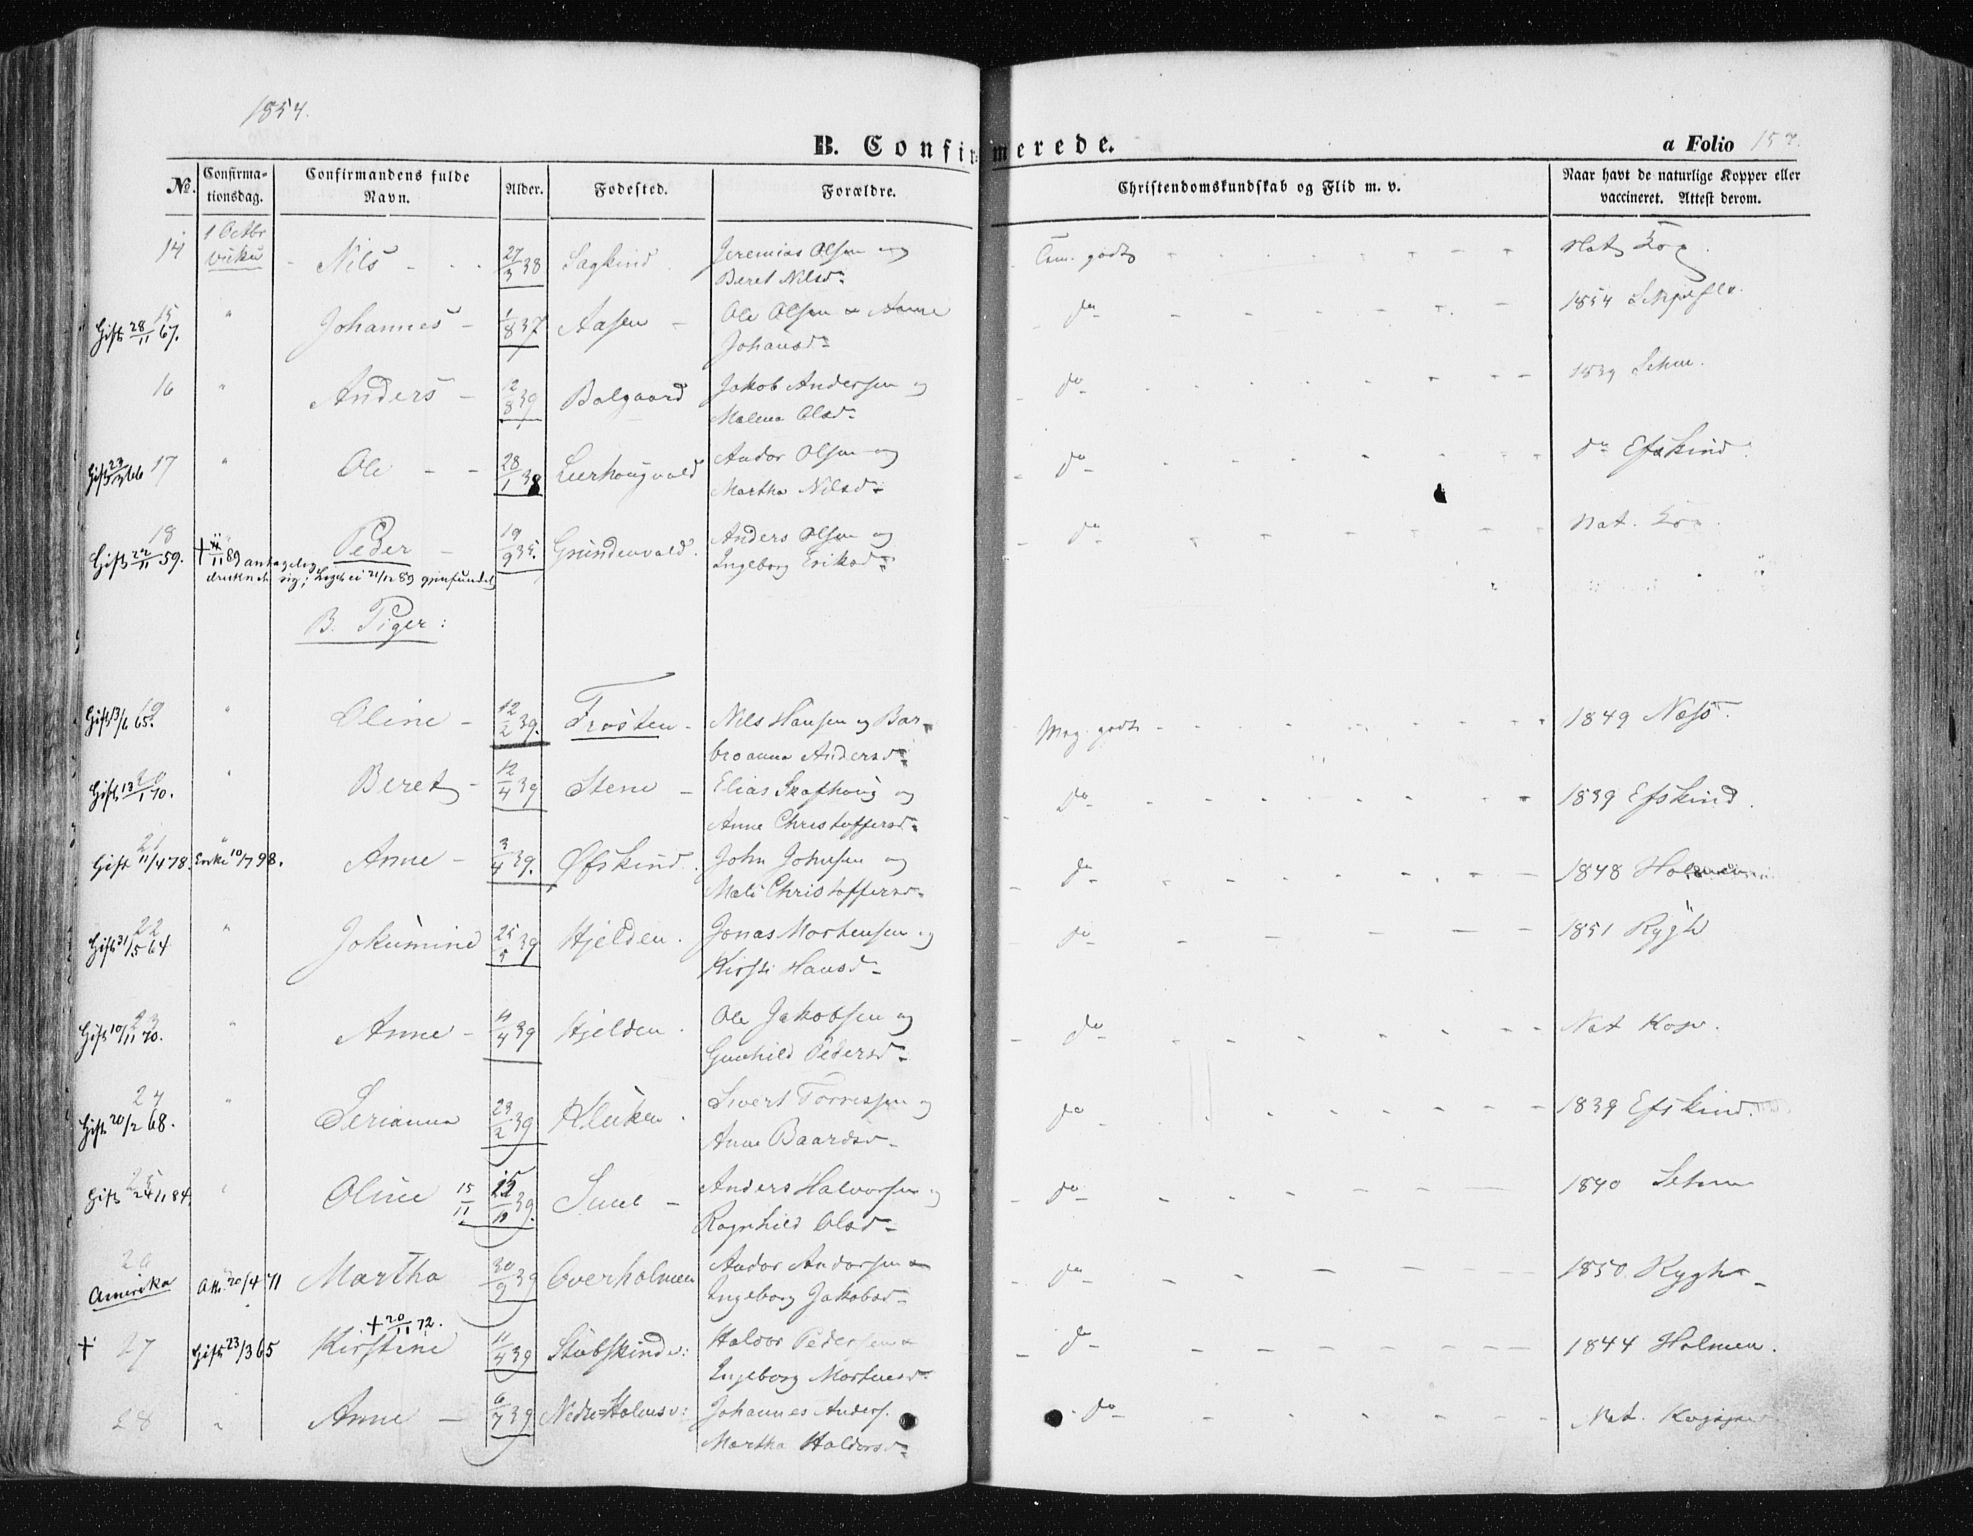 1854.
B. Confirmerede.
a Folio 157.
No. Confirmationsdag. Confirmandens fulde Navn. Alder. Fødested. Forældre. Christendomskundskab og Flid m. v. Naar havt de naturlige Kopper eller vaccineret. Attest derom.
14 1 Octbr Vuku Nils 27/3 38 Jeremias Olsen og godt Nat. Kop.
Beret Nilsd.
Gift 28/11 67. 15 " Johannes 1/8 37 Aasen Ole Olsen & Anne do 1854
Johansd.
16 " Anders 12/8 39 Balgaard Jakob Andersen og do 1839
Malena Olsd.
Gift 17 " Ole 28/1 38 Leerhougvald Andor Olsen og do do Efskind.
Martha Nilsd.
Gift 22/11 59. 18 † 11/11 89 antagelig Peder 19/9 35. Grundenvald. Anders Olsen og do Nat. Kop.
druknede sig; Liget ei 21/12 89 gjenfundet Ingeborg Eriksd.
B. Piger:
Gift 13/6 65. 19 " Oline 12/2 39. Frosten Nils Hansen og Bar- Meg. godt 1849 Næss.
broanna Andersd.
Gift 13/1 70. 20 " Beret 12/4 39 Stene Elias Skafhoug og do 1839 Efskind.
Anne Christoffersd.
Gift 11/4 78. 21 Enke 10/7 98. Anne 3/4 39. Øfskind. John Johnsen og do 1848 Holmen
Mali Christoffersd.
Gift 31/5 64 22 " Jokumine 25/5 39 Hjelden. Jonas Mortensen og do 1851 Rygh
Kirsti Hansd.
Gift 10/11 70. 23 " Anne 11/4 39 Hjelden. Ole Jakobsen og do Nat Kop.
Gunhild Pedersd.
Gift 20/2 68. 24 " Serianna 23/2 39 Kluken. Sivert Torressen og do 1839 Efskind.
Anne Baardsd.
Gift 24/1 84. 25 " Oline 15/11 39. Anders Halvorsen og do 1840
Ragnhild Olsd.
26 Amerika Att. 20/4 71 Martha 30/9 39 Overholmen Andor Andorsen & do 1850 Rygh
Ingeborg Jakobsd.
† 27 Gift 23/3 65 Kirstine † 20/11 72. 11/4 39 Stubskind v: Haldor Pedersen & do 1844 Holmen.
Ingeborg Mortensd.
28 " Anne 6/7 39. Nedre Holmsv: Johannes Anders. do Nat.
Martha Haldorsd.